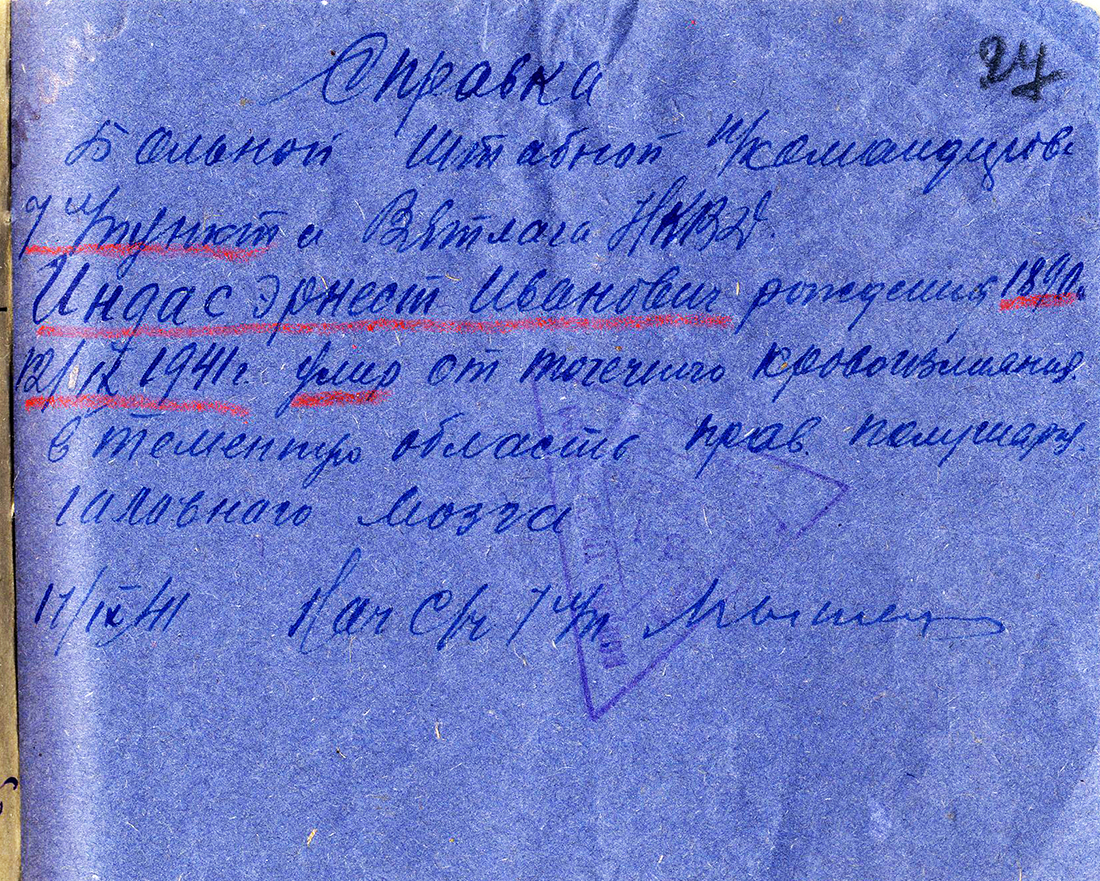 24
Справка
Больной Штабной п/командиров.
7 л/пункта Вятлага НКВД.
Индас Эрнест Иванович рождения 1890.
12/IX 1941г. умир от точечного кровоизлияния.
в теменную область прав. полушария.
галавнаго мозга
17/IX/41 Нач С/ч 7 л/п